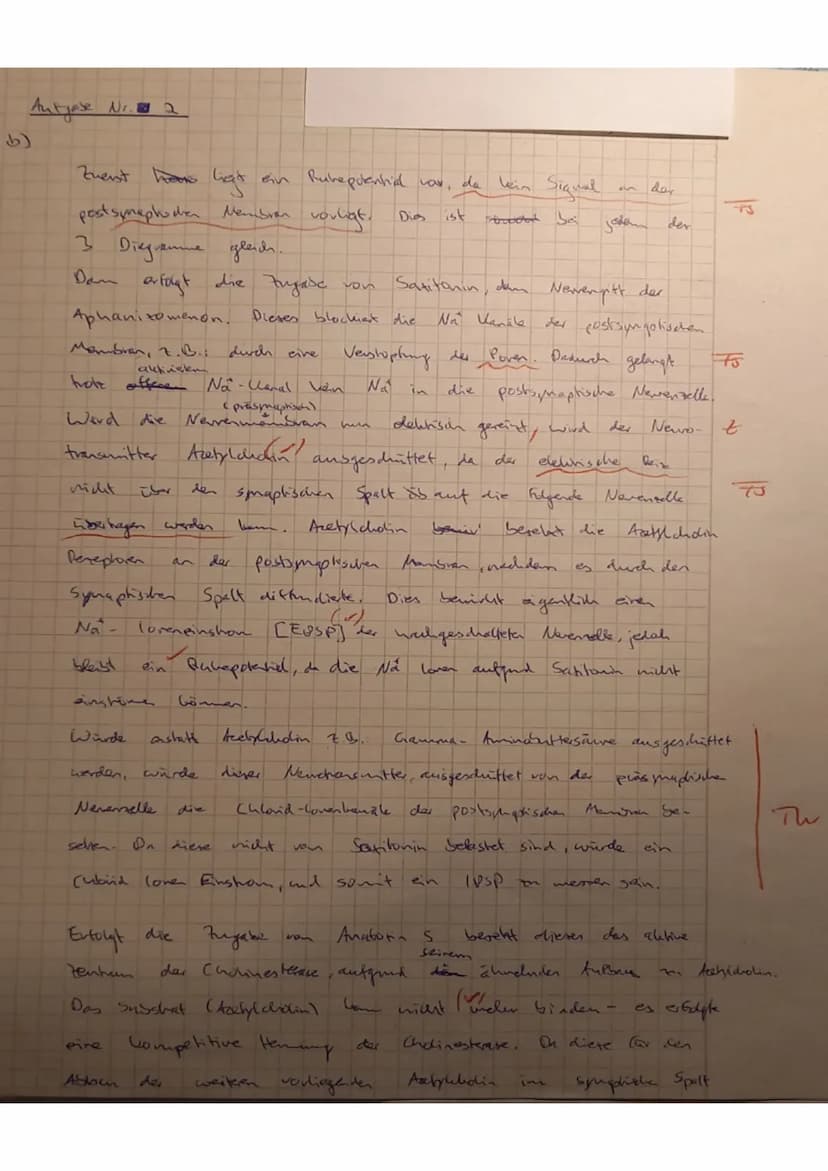 Aufgabe Nr. 2
b)
Zuerst liegt ein Ruhepotential vor, da kein Signal an der
postsynaptischen Membran vorliegt. Dies ist bei jedem der
TS
3 Diagramme gleich.
Dann erfolgt die Zugabe von Saxitonin, dem Nervengift der
Aphanizomenon. Dieses blockiert die Na⁺ Kanäle der postsynaptischen
Membran, z.B.: durch eine Verstopfung der Poren. Dadurch gelangt
TS
aktiviertem
trotz Na⁺-Kanal kein Na⁺ in die postsynaptische Nervenzelle.
(präsynaptisch)
Wird die Nervenmembran nun elektrisch gereizt, wird der Neuro-
t
transmitter Acetylcholin (✓) ausgeschüttet, da der elektrische Reiz
nicht über den synaptischen Spalt auf die folgende Nervenzelle
TS
übertragen werden kann. Acetylcholin besetzt die Acetylcholin
Rezeptoren an der postsynaptischen Membran, nachdem es durch den
synaptischen Spalt diffundierte. Dies bewirkt eigentlich einen
(✓)
Na⁺- Ioneneinstrom [EPSP] der nachgeschalteten Nervenzelle, jedoch
bleibt ein ✓ Ruhepotential, da die Na⁺ Ionen aufgrund Saxitonin nicht
einströmen können.
Würde anstatt Acetylcholin z.B. Gamma-Aminobuttersäure ausgeschüttet
werden, würde dieser Neurotransmitter, ausgeschüttet von der präsynaptische
Nervenzelle die Chlorid-Ionenkanäle der postsynaptischen Membran be-
setzen. Da diese nicht von Saxitonin belastet sind, würde ein
Chlorid Ionen Einstrom, und somit ein IPSP zu messen sein.
Erfolgt die Zugabe von Anatoxin S besetzt dieses das aktive
seinem
Zentrum der Cholinesterase, aufgrund ähnelnden Aufbau zu Acetylcholin.
Das Substrat (Acetylcholin) kann nicht (✓) mehr binden - es erfolgte
eine kompetitive Hemmung der Cholinesterase. Da diese für den
Abbau der weiteren vorliegenden Acetylcholin im synaptische Spalt